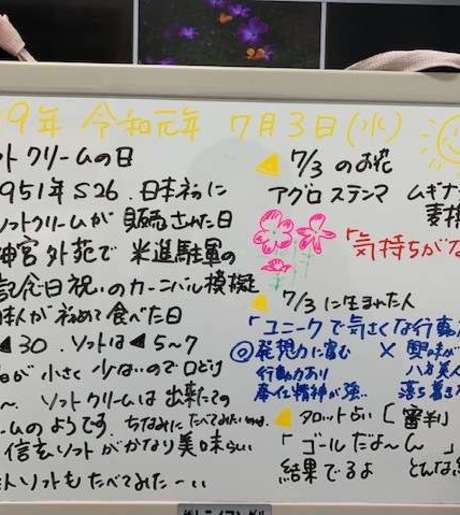 9年 令和元年 7月3日(水)
ットクリームの日
951年S26.日本初に
ソフトクリームが販売された日
神宮外苑で 米進駐軍の
記念日祝いのカーニバル模擬
本人が初めて食べた日
30. ソフトは 5〜7
が小さく少ないので口どけ
〜. ソフトクリームは出来たての
ームのようです. ちなみにたべてみたいのは、
信玄ソフトがかなり美味らしい
ソフトもたべてみたーい
7/3 のお花
アグロステンマ ムギナ
麦模
「気持ちがな
7/3 に生まれた人
「ユニークで気さくな行動
◎発想力に富む × 興味が
行動力あり 八方美人
奉仕精神が強い 落ち着き
タロット占い [審判]
「ゴールだよ〜ん」
結果でるよ どんな